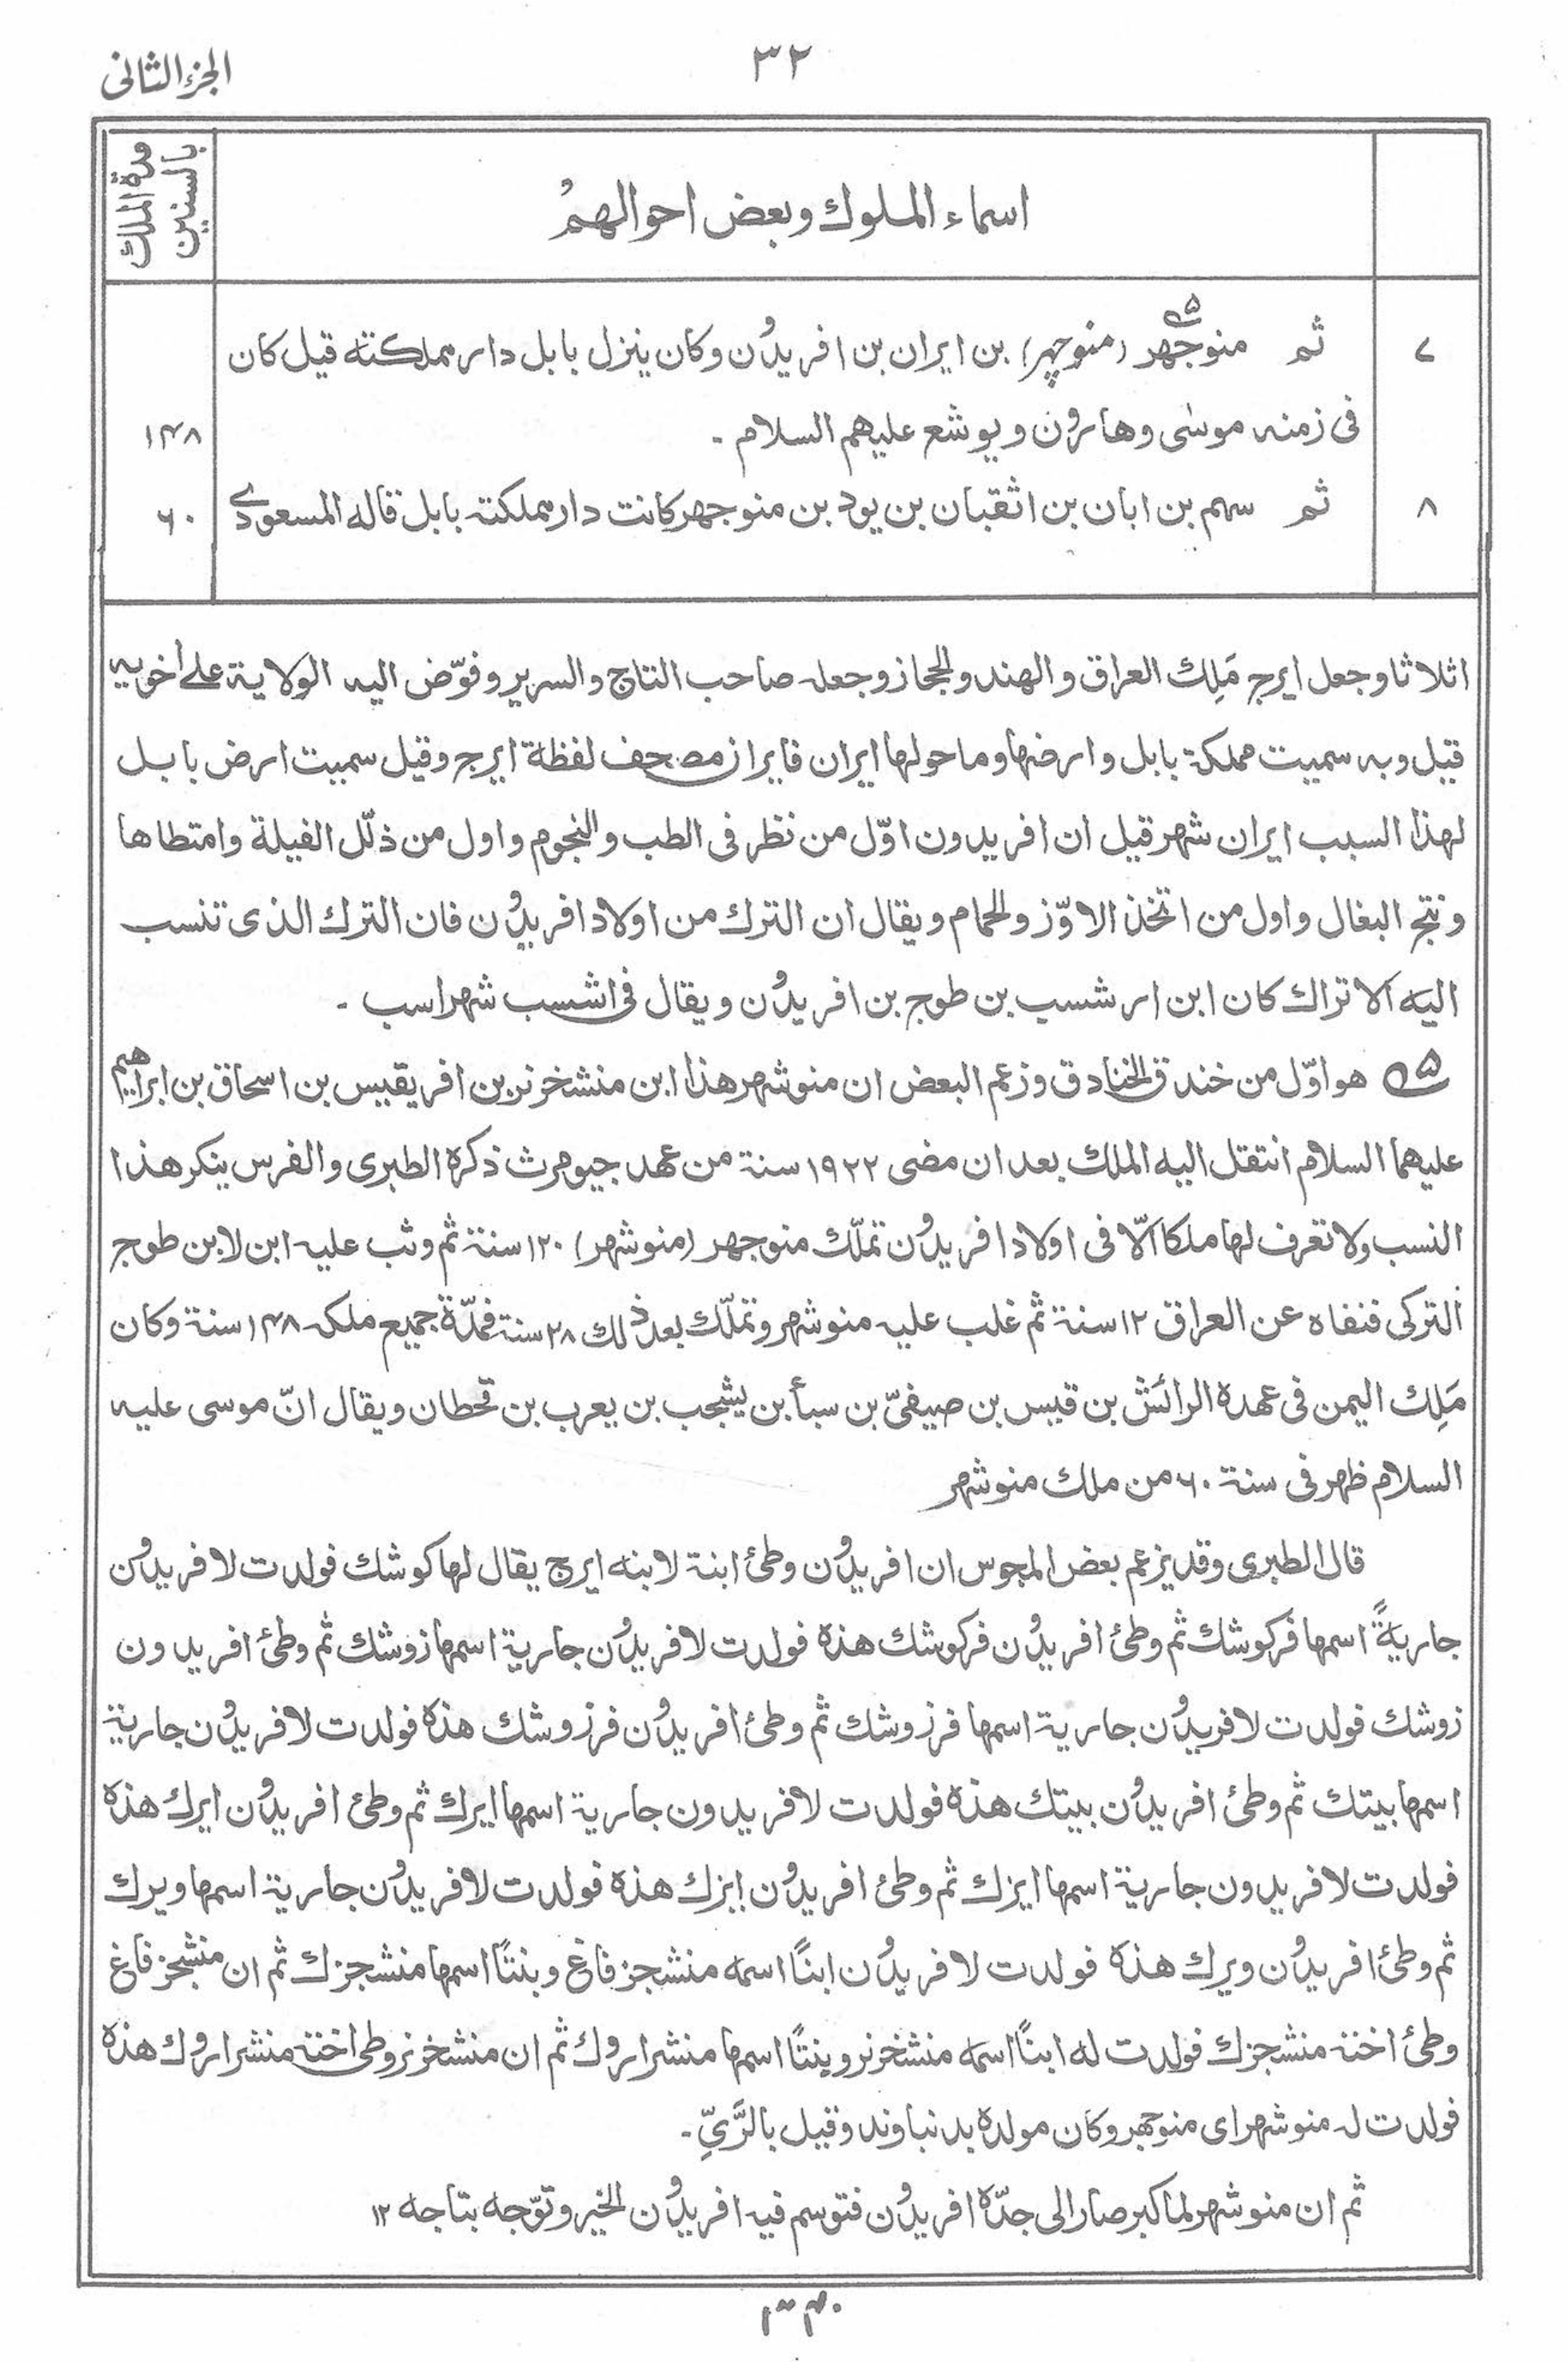 الجزء الثانى
٣٢
اسماء الملوك وبعض احوالهم
مدة الملك بالسنين
٧ ثم منوجهر (منوچهر) بن ايران بن افريدون وكان ينزل بابل دار مملكته قيل كان
فى زمنه موسى وهارون ويوشع عليهم السلام ـ ١٤٨
٨ ثم سهم بن ابان بن اثقبان بن يود بن منوجهر كانت دار مملكته بابل قاله المسعودى ٦٠
اثلاثا وجعل ايرج مَلِك العراق والهند والحجاز وجعله صاحب التاج والسرير وفوّض اليه الولاية على أخويه
قيل وبه سميت مملكة بابل وارضها وما حولها ايران فايران مصحف لفظة ايرج وقيل سميت ارض بابل
لهذا السبب ايران شهر قيل ان افريدون اوّل من نظر فى الطب والنجوم واول من ذلّل الفيلة وامتطاها
ونتج البغال واول من اتخذ الاوّز والحمام ويقال ان الترك من اولاد افريدون فان الترك الذى تنسب
اليه الاتراك كان ابن ارشسب بن طوج بن افريدون ويقال فى اشسب شهراسب ـ
۵ هو اوّل من خندق الخنادق وزعم البعض ان منوشهر هذا ابن منشخرنر بن افريقيس بن اسحاق بن ابراهيم
عليهما السلام انتقل اليه الملك بعد ان مضى ١٩٢٢ سنة من عهد جيومرث ذكره الطبرى والفرس ينكر هذا
النسب ولا تعرف لها ملكا الّا فى اولاد افريدون تملّك منوجهر (منوشهر) ١٢٠ سنة ثم وثب عليه ابن لابن طوج
التركى فنفاه عن العراق ١٢ سنة ثم غلب عليه منوشهر وتملّك بعد ذلك ٢٨ سنة فمدّة جميع ملكه ١٤٨ سنة وكان
مَلِك اليمن فى عهده الرائش بن قيس بن صيفىّ بن سبأ بن يشجب بن يعرب بن قحطان ويقال انّ موسى عليه
السلام ظهر فى سنة ٦٠ من ملك منوشهر
قال الطبرى وقد يزعم بعض المجوس ان افريدون وطئ ابنة لابنه ايرج يقال لها كوشك فولدت لافريدون
جاريةً اسمها فركوشك ثم وطئ افريدون فركوشك هذه فولدت لافريدون جارية اسمها زوشك ثم وطئ افريدون
زوشك فولدت لافريدون جارية اسمها فرزوشك ثم وطئ افريدون فرزوشك هذه فولدت لافريدون جارية
اسمها بيتك ثم وطئ افريدون بيتك هذه فولدت لافريدون جارية اسمها ايرك ثم وطئ افريدون ايرك هذه
فولدت لافريدون جارية اسمها ايزك ثم وطئ افريدون ايزك هذه فولدت لافريدون جارية اسمها ويرك
ثم وطئ افريدون ويرك هذه فولدت لافريدون ابنًا اسمه منشجز فاغ وبنتًا اسمها منشجزك ثم ان منشجز فاغ
وطئ اخته منشجزك فولدت له ابنًا اسمه منشخرنر وبنتًا اسمها منشراروك ثم ان منشخرنر وطى اخته منشراروك هذه
فولدت له منوشهر اى منوجهر وكان مولده بدنباوند وقيل بالرَّىّ ـ
ثم ان منوشهر لما كبر صار الى جدّه افريدون فتوسم فيه افريدون الخير وتوّجه بتاجه ١٢